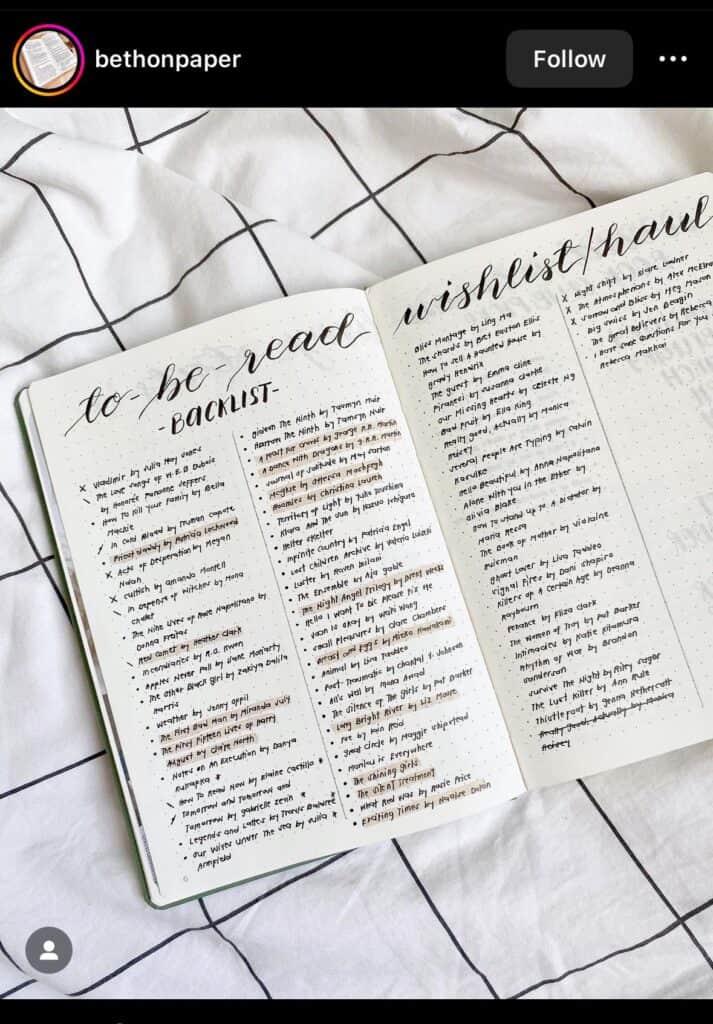 bethonpaper
Follow
to-be-read
-BACKLIST-
x Vladimir by Julia May Jonas
\ The Love Songs of W.E.B Dubois
by Honorée Fanonne Jeffers
• How To Kill Your Family by Bella
Mackie
In Cold Blood by Truman Capote
Priest Daddy by Patricia Lockwood
x Acts of Desperation by Megan
Nolan
x Cultish by Amanda Montell
\ In Defence of Witches by Mona
Chollet
• The Nine Lives of Rose Napolitano by
Donna Freitas
Red Comet by Heather Clark
\ Inconvenience by
• Apples Never Fall by Liane Moriarty
• The Other Black Girl by Zakiya Dalila
Harris
• Weather by Jenny Offill
• The First Bad Man by Miranda July
• The First Fifteen Lives of Harry
August by Claire North
• Notes On An Execution by Danya
Kukafka *
\ How To Read Now by Elaine Castillo *
Tomorrow and Tomorrow and
Tomorrow by Gabrielle Zevin *
• Legends and Lattes by Travis Baldree *
• Our Wives Under The Sea by Julia *
Armfield
• Gideon The Ninth by Tamsyn Muir
• Harrow The Ninth by Tamsyn Muir
• A Feast For Crows by George R.R. Martin
• A Dance With Dragons by G.R.R. Martin
• Journal of Solitude by May Sarton
• by
• Roomies by Christina Lauren
• Territory of Light by Yuko Tsushima
• Klara And The Sun by Kazuo Ishiguro
• Helter Skelter
• Infinite Country by Patricia Engel
• Lost Children Archive by Valeria Luiselli
• Luster by Raven Leilani
• The Ensemble by Aja Gabel
• The Night Angel Trilogy by Brent Weeks
• Hello I Want To Die Please Fix Me
• Yoon is Okay by
• Small Pleasures by Clare Chambers
• Breast and Eggs by Mieko Kawakami
• Animal by Lisa Taddeo
• Post-Traumatic by Chantal V. Johnson
• All's Well by Mona Awad
• The Silence of The Girls by Pat Barker
• Long Bright River by Liz Moore
• Pet by
• Great Circle by Maggie Shipstead
• is Everywhere
• The Shining Girls
• The Silent Treatment
• What Red Was by Rosie Price
• Exciting Times by Naoise Dolan
wishlist/haul
Bliss Montage by Ling Ma
The Shards by Bret Easton Ellis
How To Sell A Haunted House by
Grady Hendrix
The Guest by Emma Cline
Piranesi by Susanna Clarke
Our Missing Hearts by Celeste Ng
Bad Fruit by Ella King
Really Good, Actually by Monica
Heisey
Several People Are Typing by Calvin
Kasulke
Hello Beautiful by Anna Napolitano
Alone With You In The Ether by
Olivia Blake
How To Stand Up To A Dictator by
Maria Ressa
The Book of Mother by Violaine
Huisman
Ghost Lover by Lisa Taddeo
Signal Fires by Dani Shapiro
Killers of A Certain Age by Deanna
Raybourn
Penance by Eliza Clark
The Women of Troy by Pat Barker
Intimacies by Katie Kitamura
Rhythm of War by Brandon
Sanderson
Survive The Night by Riley Sager
The Lust Killer by Ann Rule
Thistlefoot by Genna Rethercott
Really Good, Actually by Monica
Heisey
x Night Shift by Kiare Ladner
x The Atmospherians by Alex McElroy
x Sorrow and Bliss by Meg Mason
• Big Swiss by Jen Beagin
• The Great Believers by Rebecca
• I Have Some Questions For You
Rebecca Makkai